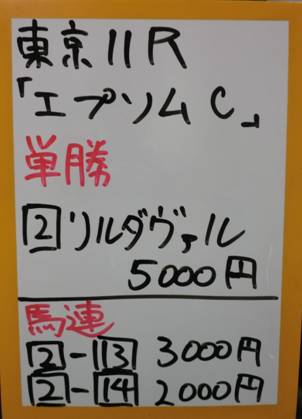 東京11R
「エプソムC」
単勝
2リルダヴァル
5000円
馬連
2-13 3000円
2-14 2000円